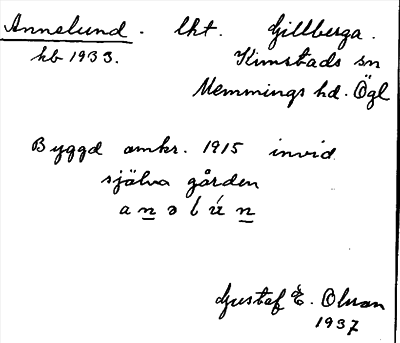 Annelund. lht. Gillberga.
hb 1933. Kimstads sn
Memmings hd. Ögl
Byggd omkr. 1915 invid
själva gården
a n ə l ú n
Gustaf E. Olsson
1937